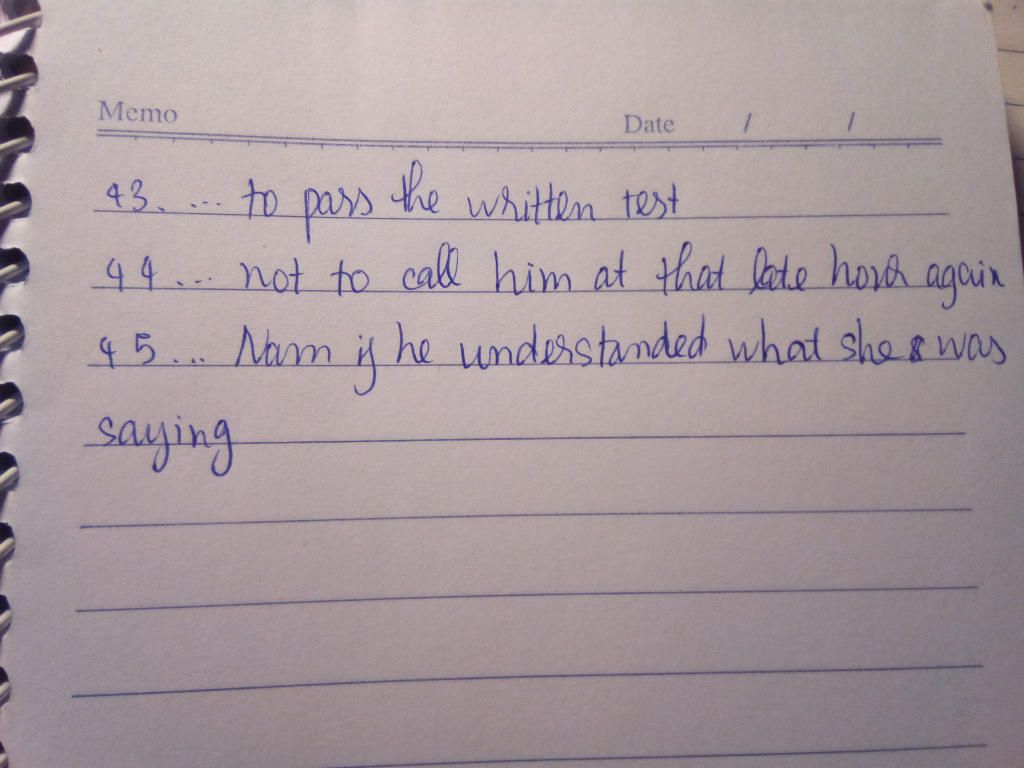 Memo Date / /
43. ... to pass the written test
44 ... not to call him at that late hour again
45 ... Nam if he understanded what she was
saying